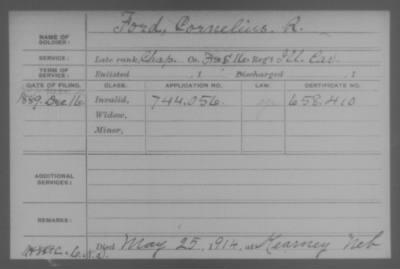 NAME OF SOLDIER: Ford, Cornelius R.
SERVICE: Late rank, Chap. Co. F&S 16 Reg't Ill. Cav.
TERM OF SERVICE: Enlisted , 1 Discharged , 1
DATE OF FILING. CLASS. APPLICATION NO. LAW. CERTIFICATE NO.
1889, Dec 16 Invalid, 744.056. 658.410
Widow,
Minor,
ADDITIONAL SERVICES:
REMARKS:
Died May 25, 1914, at Kearney Neb